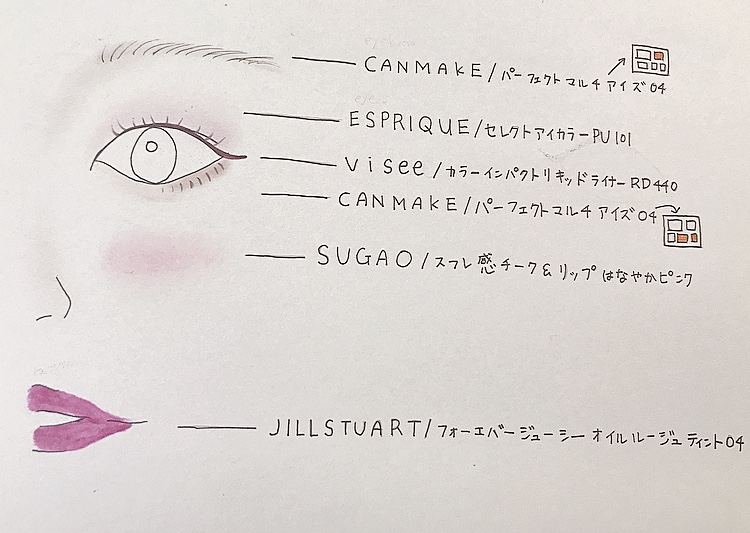 CANMAKE/パーフェクトマルチアイズ04
ESPRIQUE/セレクトアイカラーPU101
Visée/カラーインパクトリキッドライナーRD440
CANMAKE/パーフェクトマルチアイズ04
SUGAO/スフレ感チーク&リップはなやかピンク
JILLSTUART/フォーエバージューシーオイルルージュティント04